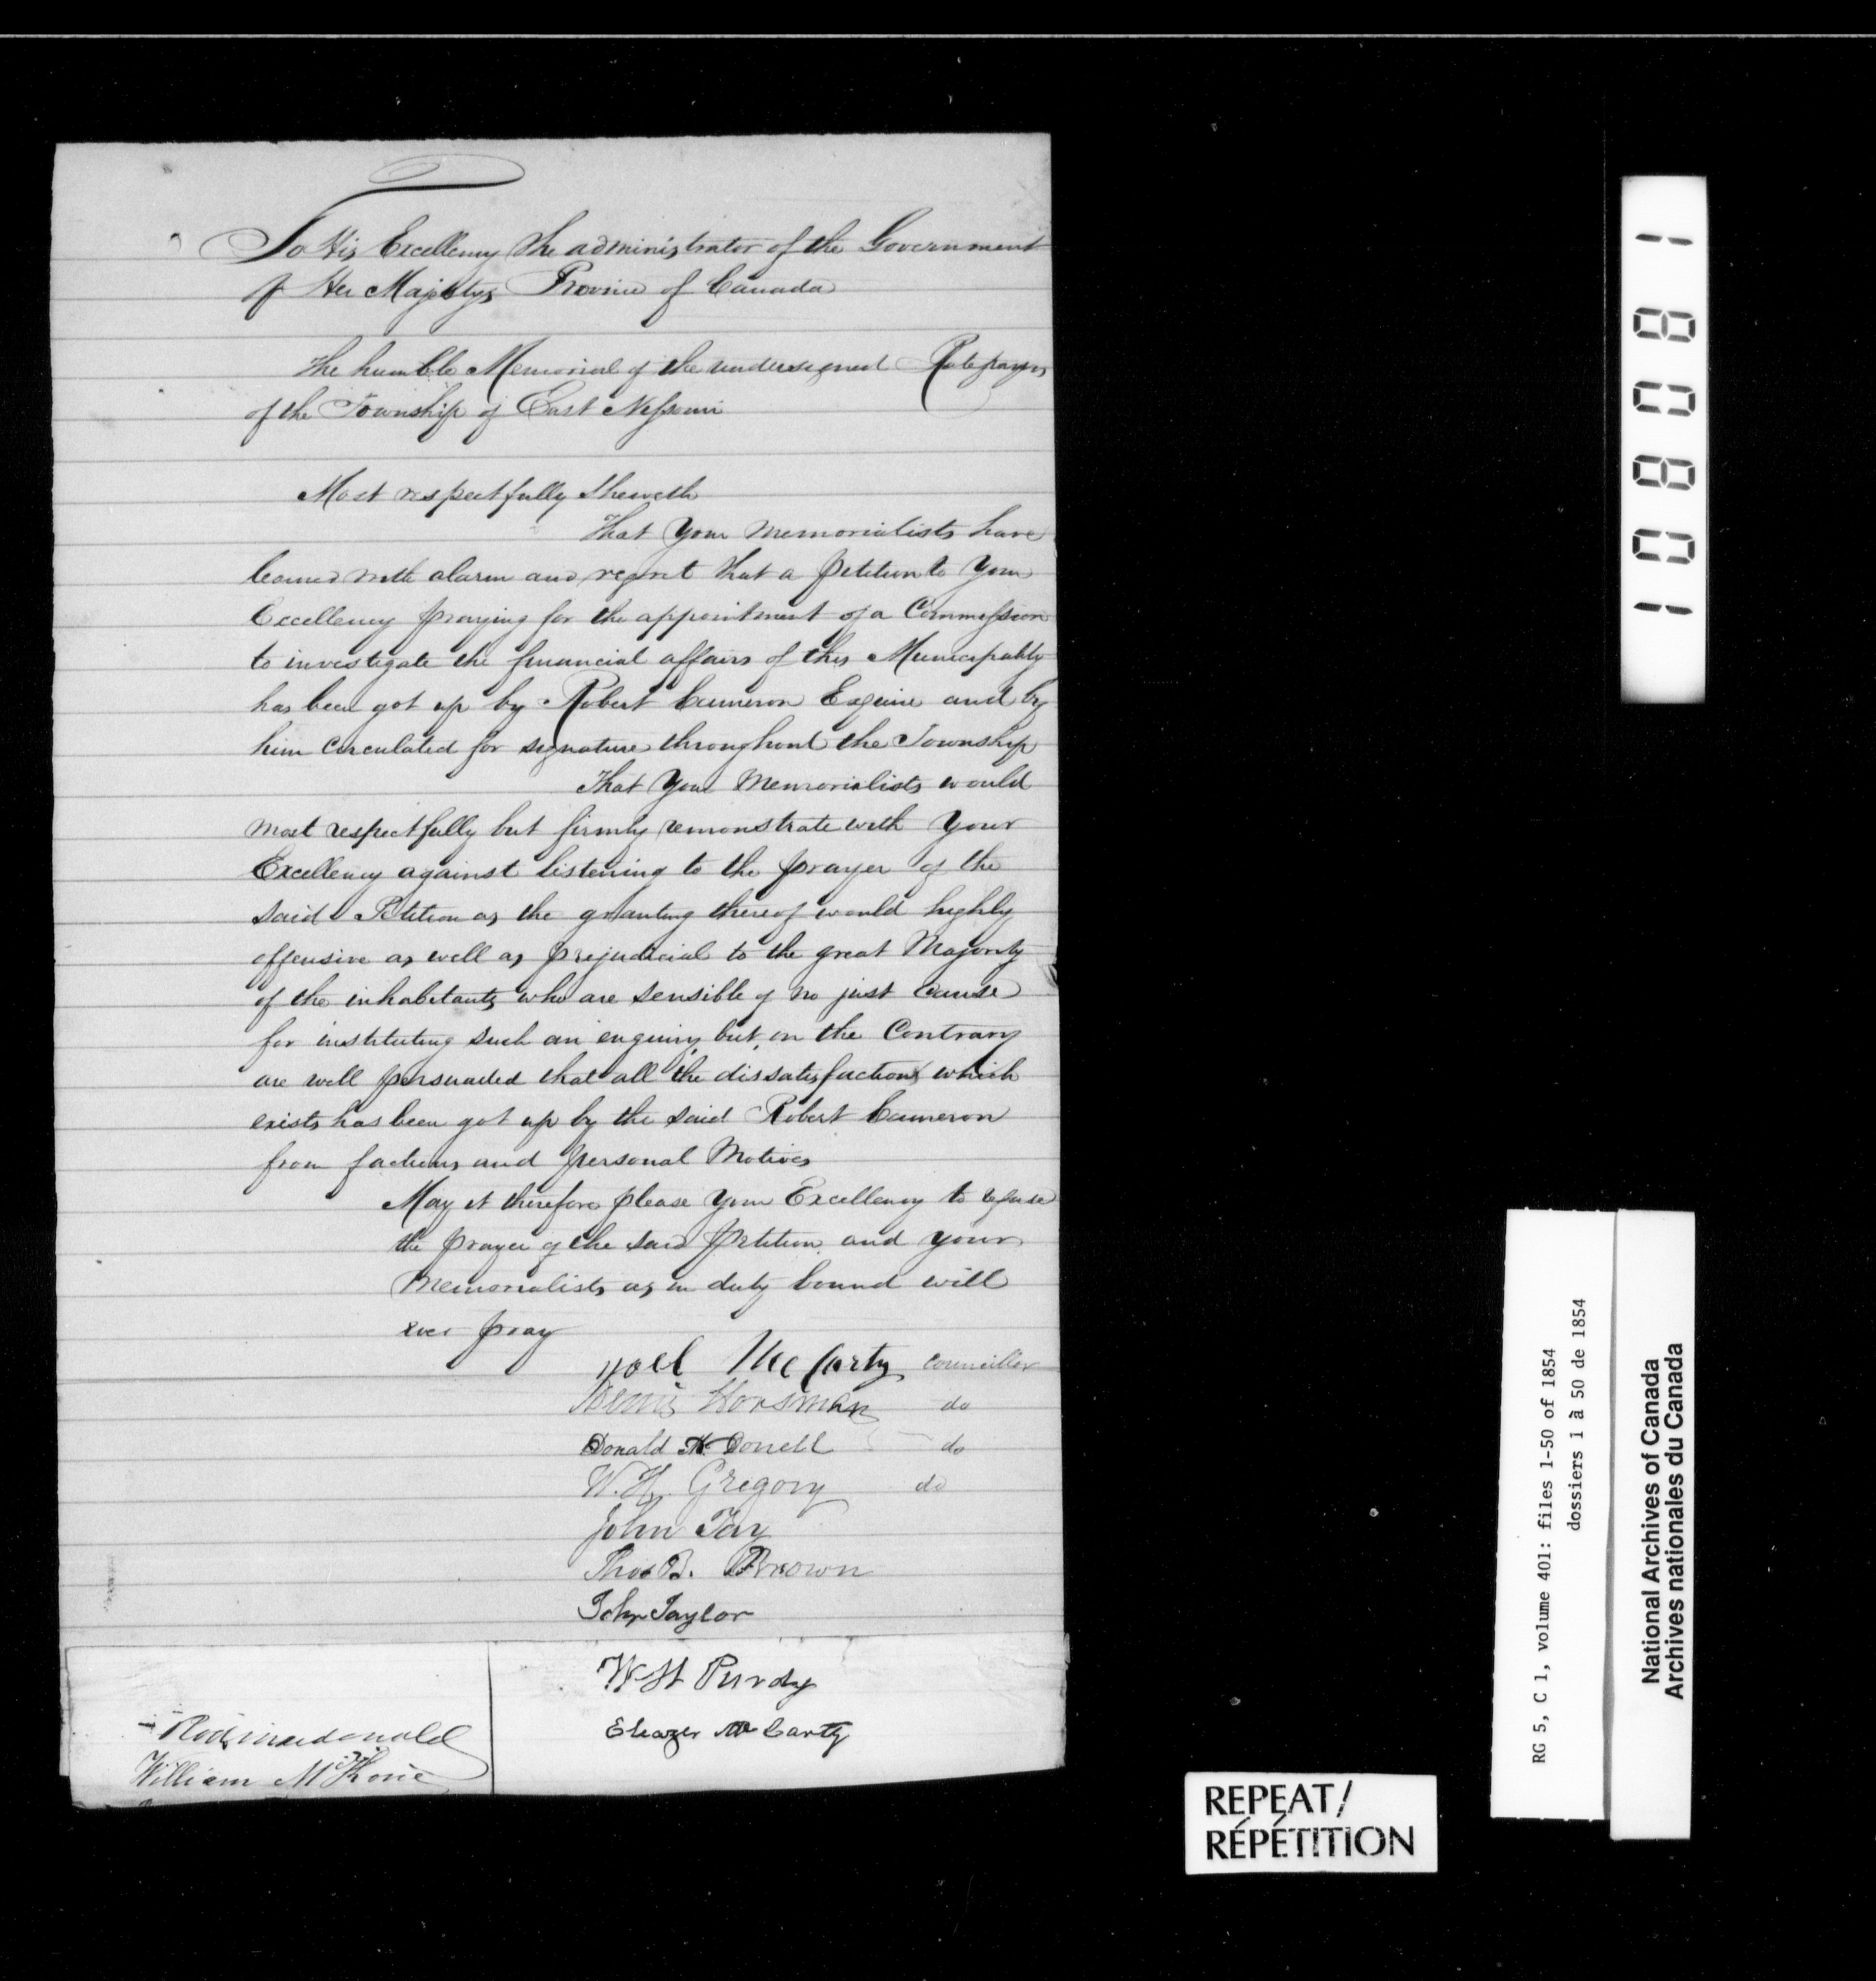 To His Excellency the administrator of the Government
of Her Majestys Province of Canada
The humble Memorial of the undersigned Ratepayers
of the Township of East Nissouri
Most respectfully Sheweth
That Your Memorialists have
learned with alarm and regret that a Petition to Your
Excellency praying for the appointment of a Commission
to investigate the financial affairs of this Municipality
has been got up by Robert Cameron Esquire and by
him circulated for signature throughout the Township
That Your Memorialists would
most respectfully but firmly remonstrate with Your
Excellency against listening to the prayer of the
said Petition as the granting thereof would highly
offensive as well as prejudicial to the great Majority
of the inhabitants who are sensible of no just Cause
for instituting such an enquiry but, on the Contrary
are well persuaded that all the dissatisfaction which
exists has been got up by the said Robert Cameron
from factious and personal Motives
May it therefore please Your Excellency to refuse
the prayer of the said Petition and your
Memorialists as in duty bound will
ever pray
Noel McCarty Councillor
Horsman do
Donald McDonell do
W. H. Gregory do
John Fay
Thos B. Brown
John Taylor
W H Purdy
Eleazer McCarty
Rod macdonald
William McKhone
1 0 8 0 8 1
RG 5, C 1, volume 401: files 1-50 of 1854
dossiers 1 à 50 de 1854
National Archives of Canada
Archives nationales du Canada
REPEAT/
RÉPÉTITION